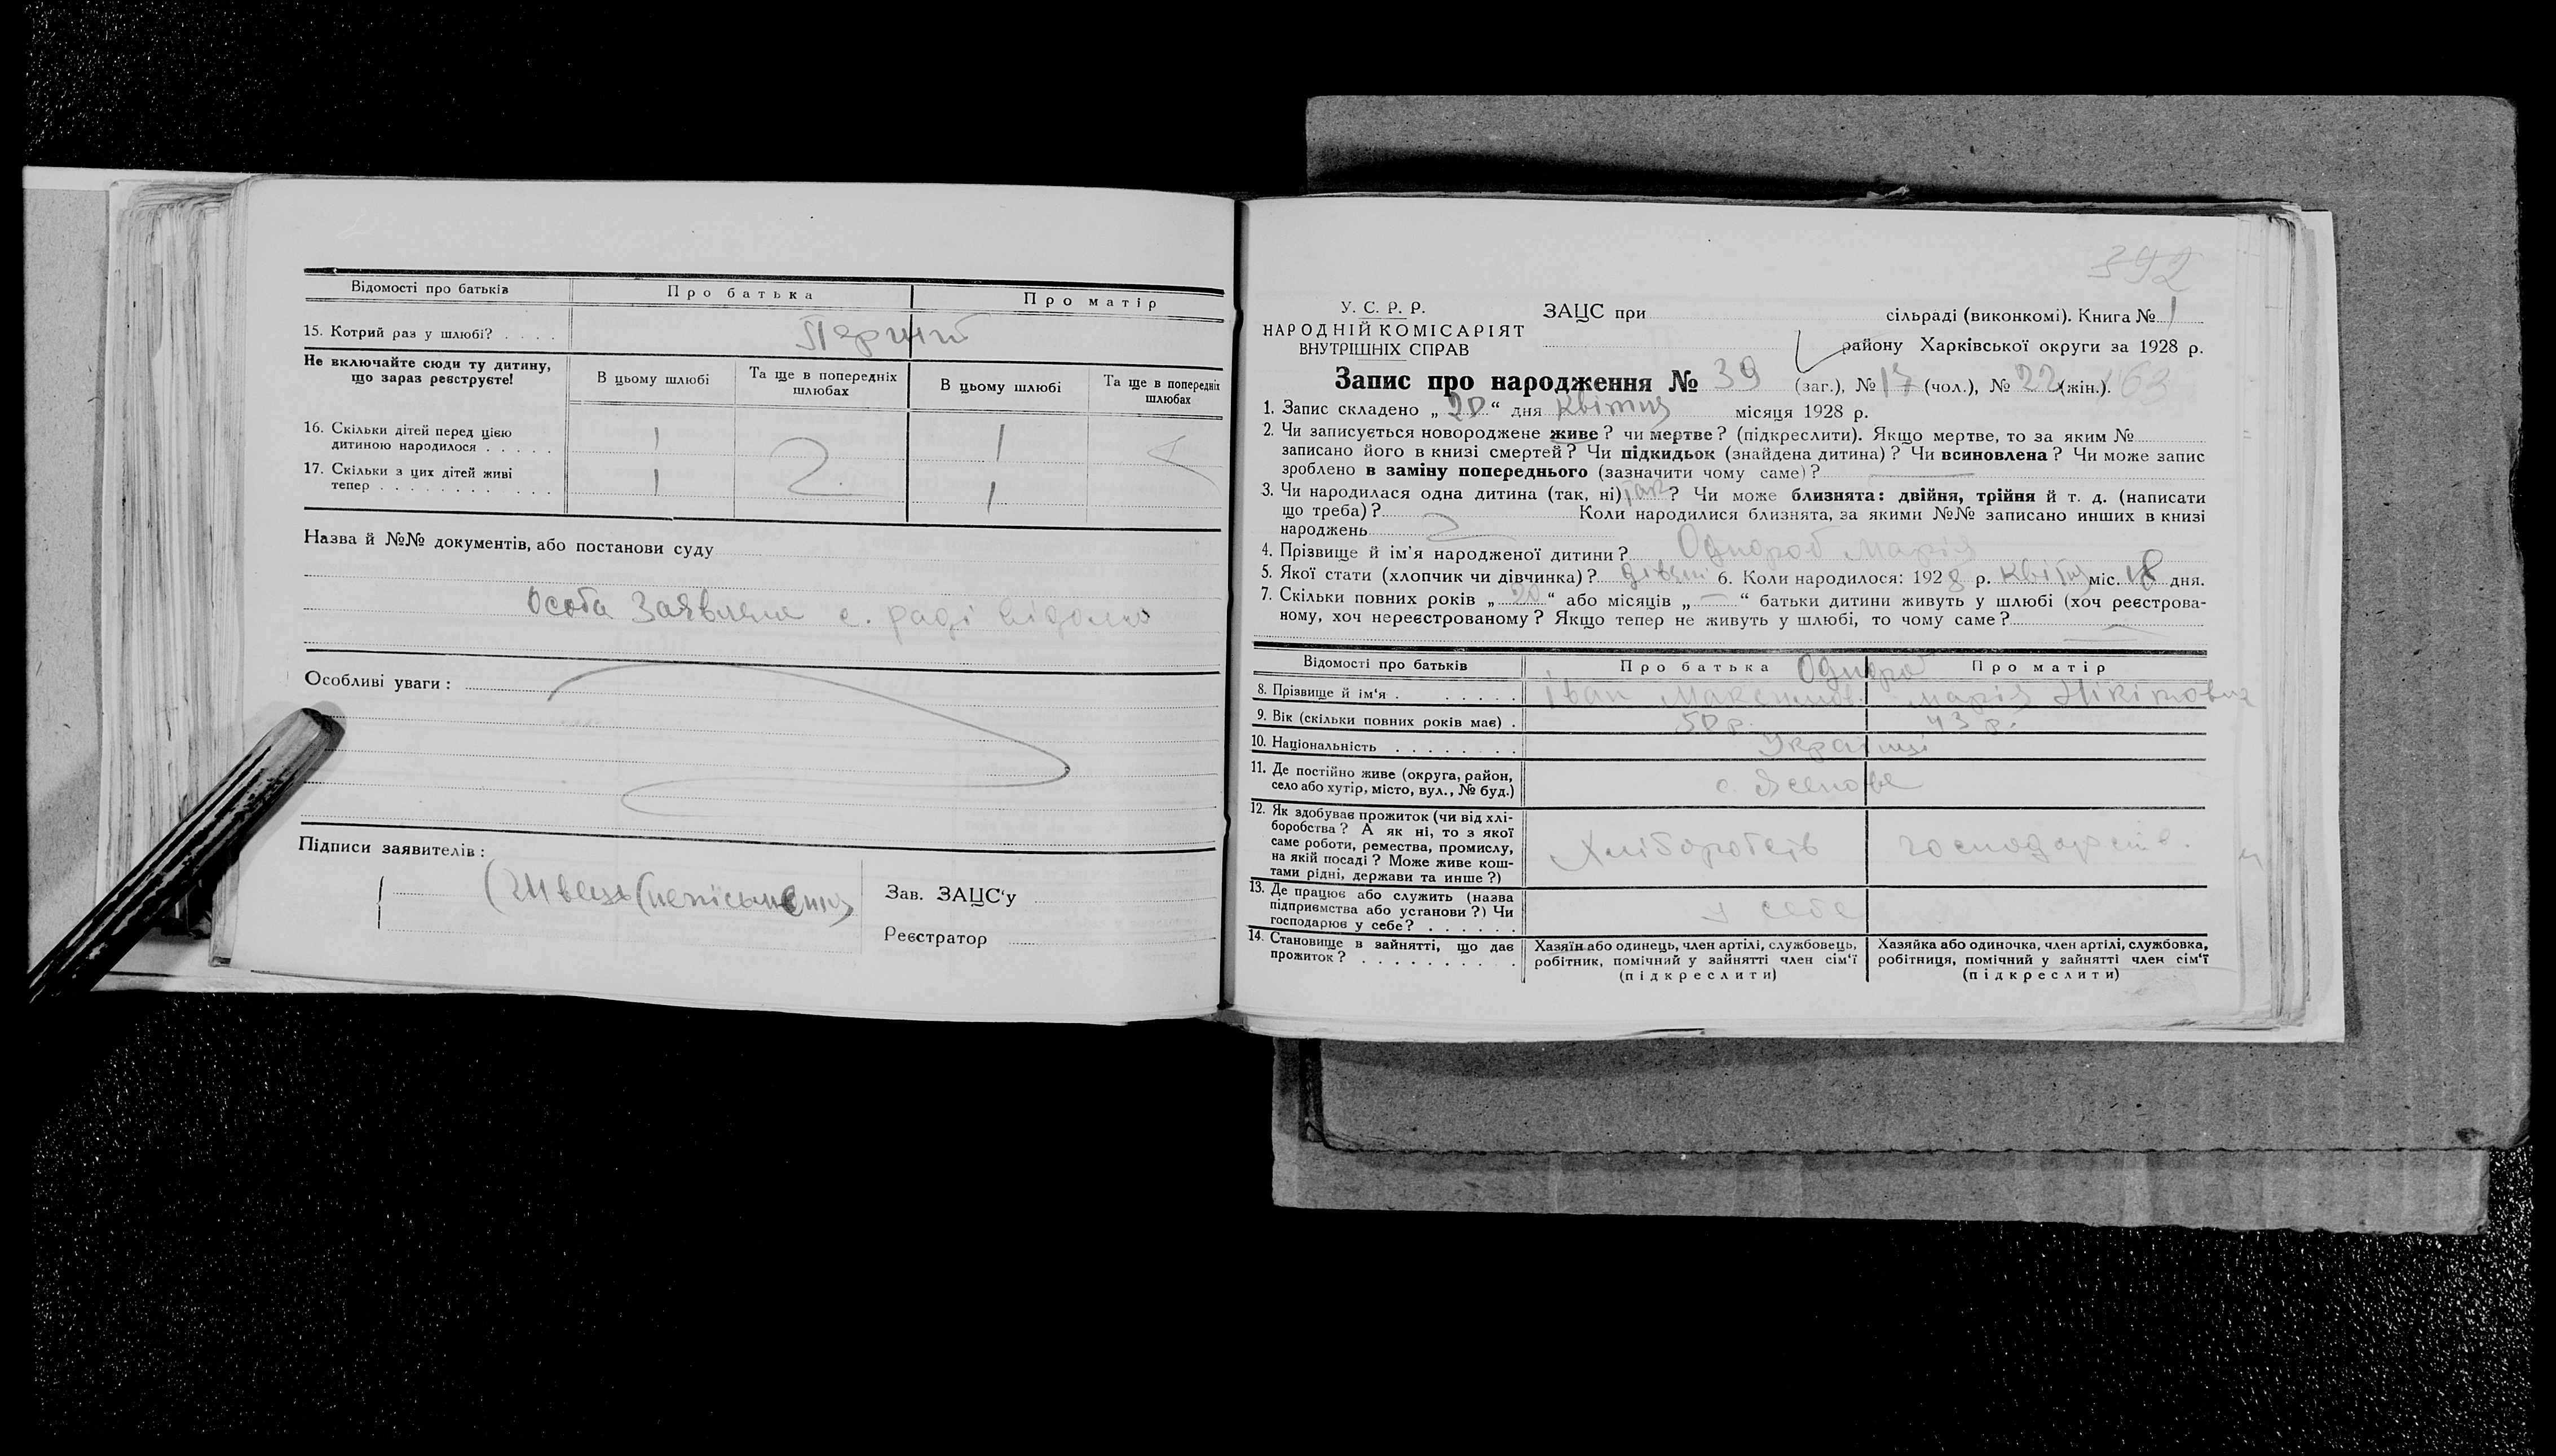 Відомості про батьків Про батька Про матір
15. Котрий раз у шлюбі? . . . . Перший
Не включайте сюди ту дитину, що зараз реєструєте! В цьому шлюбі Та ще в попередніх шлюбах В цьому шлюбі Та ще в попередніх шлюбах
16. Скільки дітей перед цією
дитиною народилося . . . . . 1 1
17. Скільки з цих дітей живі
тепер . . . . . . . . . . . . 1 1
Назва й №№ документів, або постанови суду
Особа Заявника с. раді відома
Особливі уваги :
Підписи заявителів :
Зав. ЗАЦС'у
Реєстратор
392
У. С. Р. Р.
НАРОДНІЙ КОМІСАРІЯТ
ВНУТРІШНІХ СПРАВ
ЗАЦС при сільраді (виконкомі). Книга № 1
району Харківської округи за 1928 р.
Запис про народження № 39 (заг.), № 17 (чол.), № 22 (жін.). 62
1. Запис складено „ 20 “ дня квітня місяця 1928 р.
2. Чи записується новороджене живе? чи мертве? (підкреслити). Якщо мертве, то за яким №
записано його в книзі смертей? Чи підкидьок (знайдена дитина)? Чи всиновлена? Чи може запис
зроблено в заміну попереднього (зазначити чому саме)?
3. Чи народилася одна дитина (так, ні) так? Чи може близнята: двійня, трійня й т. д. (написати
що треба)? Коли народилися близнята, за якими №№ записано инших в книзі
народжень
4. Прізвище й ім'я народженої дитини? Однороб Марія
5. Якої стати (хлопчик чи дівчинка)? дівчин 6. Коли народилося: 1928 р. квітня міс. 18 дня.
7. Скільки повних років „ 20 “ або місяців „ — “ батьки дитини живуть у шлюбі (хоч реєстрова-
ному, хоч нереєстрованому? Якщо тепер не живуть у шлюбі, то чому саме?
Відомості про батьків Про батька Про матір
Однороб
8. Прізвище й ім'я . . . . . . Іван Максимов. Марія Нікітовна
9. Вік (скільки повних років має) . 50 р. 43 р.
10. Національність . . . . . . . . Українці
11. Де постійно живе (округа, район,
село або хутір, місто, вул., № буд.) с. Ясенове
12. Як здобуває прожиток (чи від хлі-
боробства? А як ні, то з якої
саме роботи, ремества, промислу,
на якій посаді? Може живе кош-
тами рідні, держави та инше?)
господарств.
13. Де працює або служить (назва
підприємства або установи?) Чи
господарює у себе? . . . . . . у себе
14. Становище в зайнятті, що дає
прожиток? . . . . . . . . . .
Хазяїн або одинець, член артілі, службовець,
робітник, помічний у зайнятті член сім'ї
(підкреслити)
Хазяйка або одиночка, член артілі, службовка,
робітниця, помічний у зайнятті член сім'ї
(підкреслити)